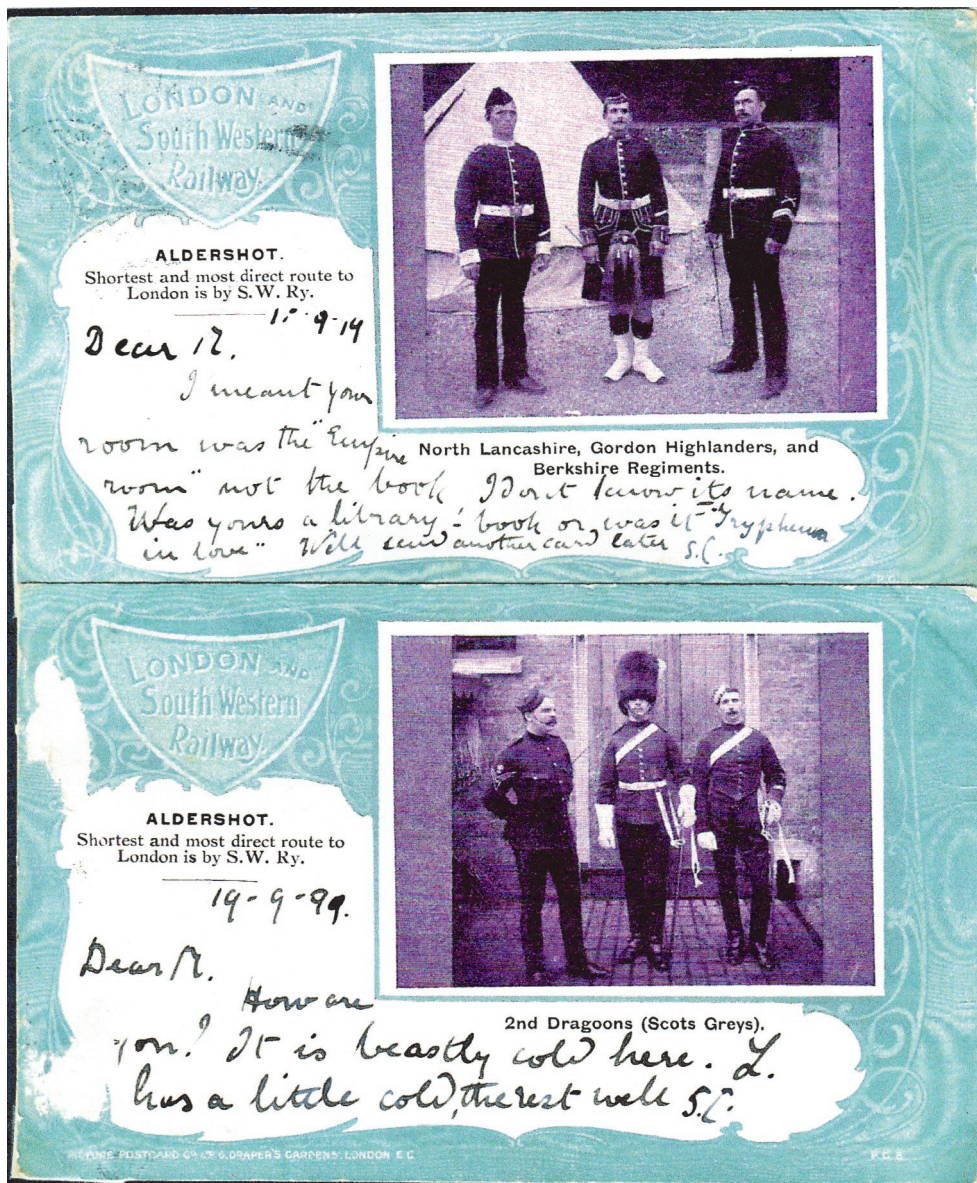 LONDON AND
South Western
Railway.
ALDERSHOT.
Shortest and most direct route to
London is by S. W. Ry.
Dear M.
I meant your
room was the "Empire
room" not the book I don't know its name.
Was yours a library - book or was it "Tryphena
in love" Will send another card later S.C.
North Lancashire, Gordon Highlanders, and
Berkshire Regiments.
P.C.
LONDON AND
South Western
Railway.
ALDERSHOT.
Shortest and most direct route to
London is by S. W. Ry.
19-9-99.
Dear M.
How are
you? It is beastly cold here. L.
has a little cold, the rest well S.C.
2nd Dragoons (Scots Greys).
PICTURE POSTCARD CO LD 6, DRAPER'S GARDENS, LONDON E C
P.C.B.